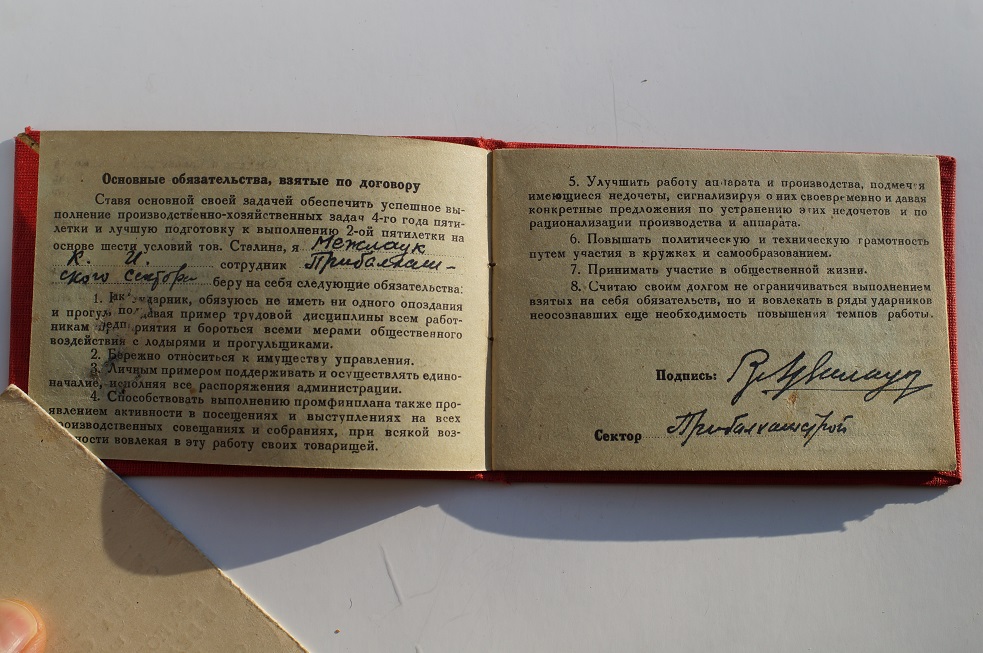 Основные обязательства, взятые по договору
Ставя основной своей задачей обеспечить успешное вы-
полнение производственно-хозяйственных задач 4-го года пяти-
летки и лучшую подготовку к выполнению 2-ой пятилетки на
основе шести условий тов. Сталина, я Межлаук
К. И. сотрудник Прибалхаш-
ского сектора беру на себя следующие обязательства:
1. Как ударник, обязуюсь не иметь ни одного опоздания
и прогул давая пример трудовой дисциплины всем работ-
никам предприятия и бороться всеми мерами общественного
воздействия с лодырями и прогульщиками.
2. Бережно относиться к имуществу управления.
3. Личным примером поддерживать и осуществлять едино-
началие, исполняя все распоряжения администрации.
4. Способствовать выполнению промфинплана также про-
явлением активности в посещениях и выступлениях на всех
производственных совещаниях и собраниях, при всякой воз-
можности вовлекая в эту работу своих товарищей.
5. Улучшить работу аппарата и производства, подмечая
имеющиеся недочеты, сигнализируя о них своевременно и давая
конкретные предложения по устранению этих недочетов и по
рационализации производства и аппарата.
6. Повышать политическую и техническую грамотность
путем участия в кружках и самообразованием.
7. Принимать участие в общественной жизни.
8. Считаю своим долгом не ограничиваться выполнением
взятых на себя обязательств, но и вовлекать в ряды ударников
неосознавших еще необходимость повышения темпов работы.
Подпись:
Сектор Прибалхашстрой